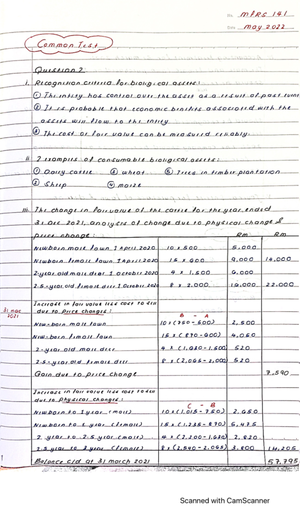 No. MFRS 141
Date May 2022
Common Test
Question 2
i. Recognition criteria for biological assets:
① The entity has control over the asset as a result of past event
② It is probable that economic benefits associated with the
assets will flow to the entity
③ The cost or fair value can be measured reliably.
ii 2 examples of consumable biological assets:
① Dairy cattle ② wheat ⑤ Trees in timber plantation
③ Sheep ④ maize
iii The change in fair value of the cattle for the year ended
31 Dec 2021, analysis of change due to physical change &
price change: Rm Rm
Newborn male 1 April 2020 10 x 500 5,000
Newborn female 1 April 2020 9,000 14,000
2-year old male 1 October 2020 4 x 1,500 6,000
2.5-year old female 1 October 2020 8 x 2,000 22,000
Increase in fair value less cost to
31 Mar
2021
due to price changes: B - A
Newborn male 2,500
Newborn female 4,050
2-year old male 520
2.5-year old female 520
Gain due to price change 7,590
Increase in fair value less cost to
due to physical changes: C - B
Newborn to 1 year (male) 2,650
Newborn to 1 year (female) 5,475
2 year to 2.5 year (male)
2.5 year to 3 year (female) 3,800 14,205
Balance c/d at 31 march 2021 57,795
Scanned with CamScanner